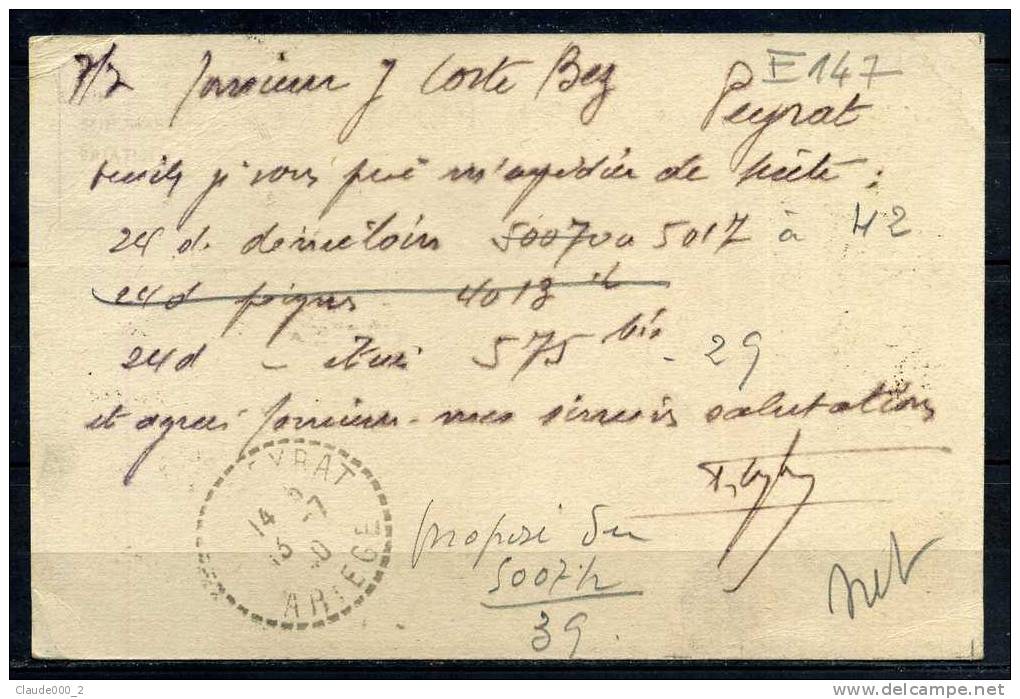 E147
7/7 Monsieur J Corte Bez Peyrat
je vous prie m'expédier de suite :
24 d. démêloirs 50070 ou 5017 à 42
24d peignes 4013
24d - 575 bis - 29
et agréez Monsieur - mes sincères salutations
EYRAT
14
15
ARIEGE
proposé du
5007 h
39.
net
Claude000_2
delcampe.net